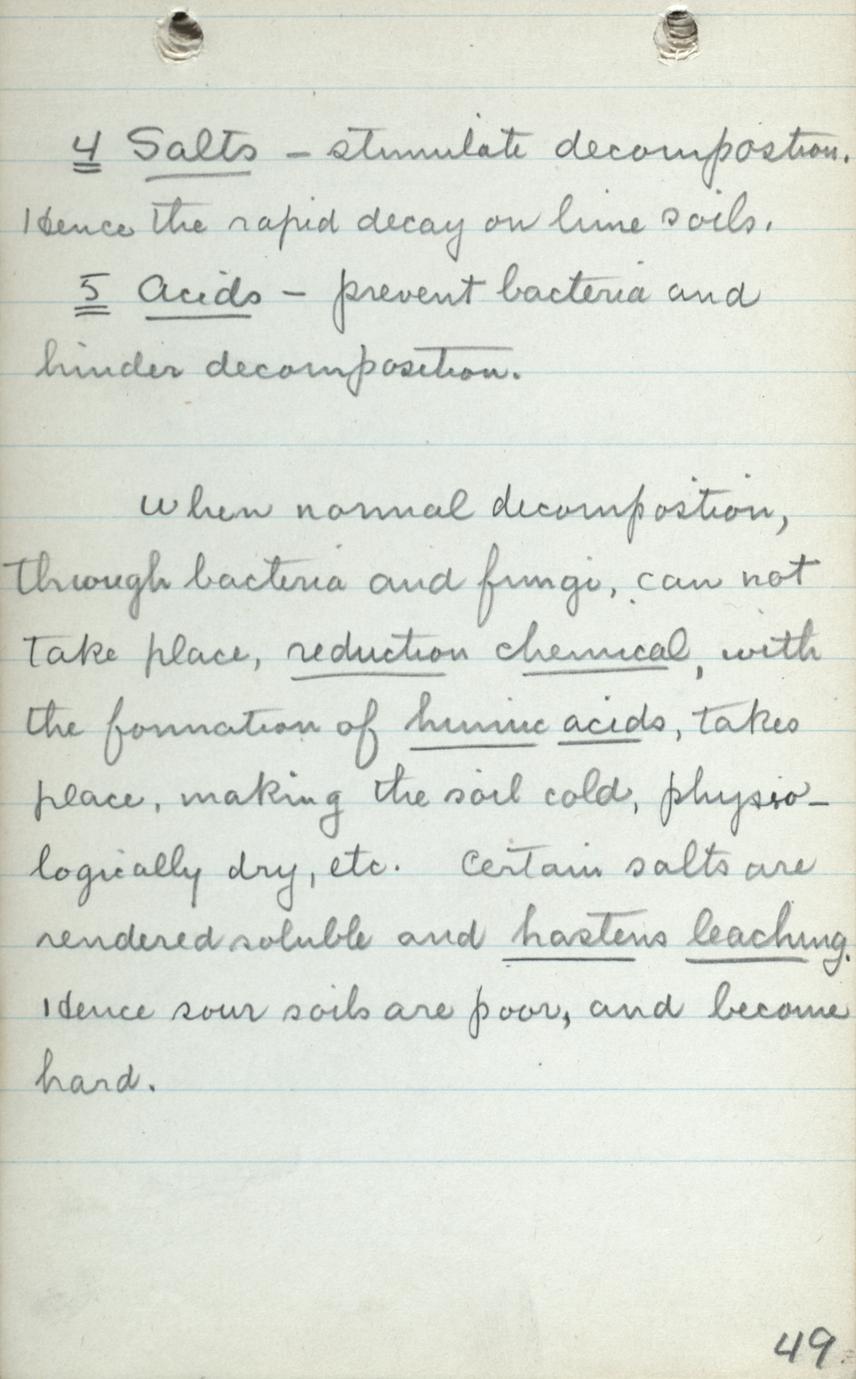 4 Salts – stimulate decompostion.
Hence the rapid decay on lime soils.
5 Acids – prevent bacteria and
hinder decomposition.
When normal decompostion,
through bacteria and fungi, can not
take place, reduction chemical, with
the formation of humic acids, takes
place, making the soil cold, physio-
logically dry, etc. Certain salts are
rendered soluble and hastens leaching.
Hence sour soils are poor, and become
hard.
49.